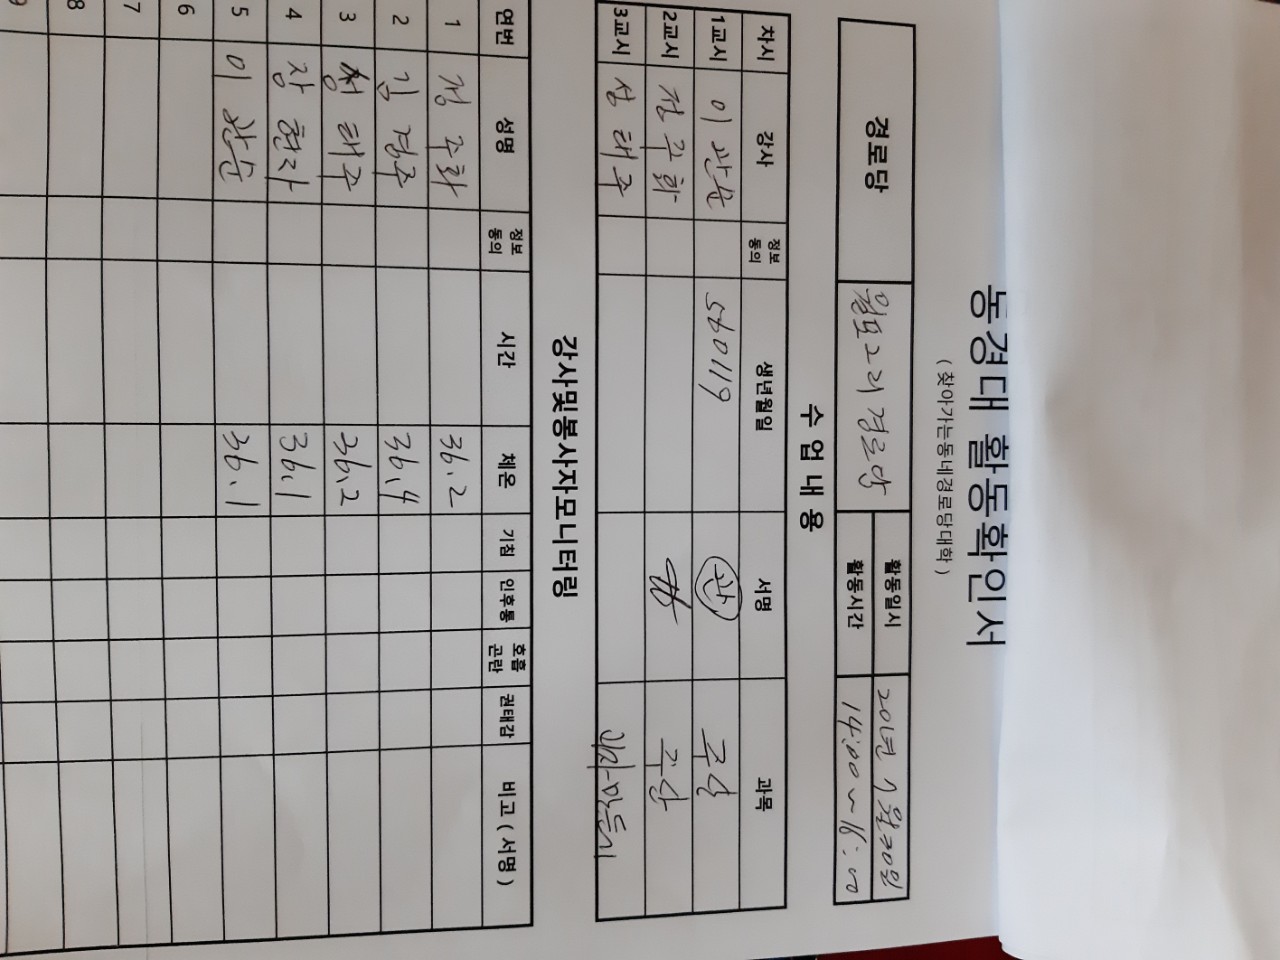 동경대 활동확인서
( 찾아가는동네경로당대학 )
경로당 월도2리 경로당 활동일시 201년 7월20일
활동시간 14:00 ~ 16:00
수 업 내 용
차시 강사 정보동의 생년월일 서명 과목
1교시 이관순 560119 관
2교시 정주화
3교시 성태주
강사및봉사자모니터링
연번 성명 정보동의 시간 체온 기침 인후통 호흡곤란 권태감 비고 ( 서명 )
1 정주화 36.2
2 김경주 36.4
3 성태주 36.2
4 장현자 36.1
5 이관순 36.1
6
7
8
9